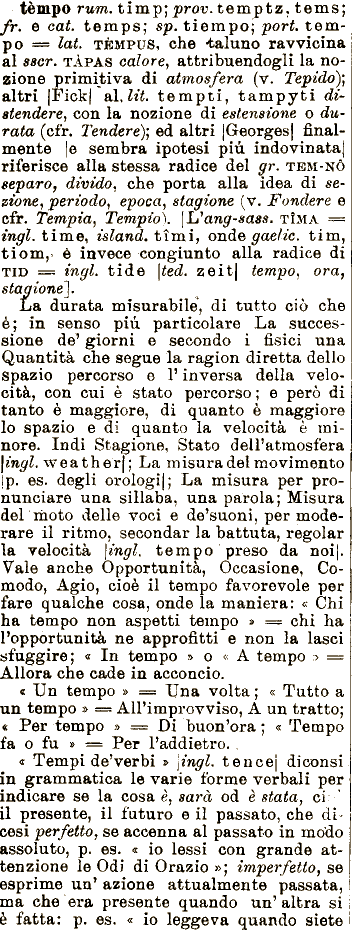 tèmpo rum. timp; prov. temptz, tems;
fr. e cat. temps; sp. tiempo; port. tem-
po = lat. TÈMPUS, che taluno ravvicina
al sscr. TÀPAS calore, attribuendogli la no-
zione primitiva di atmosfera (v. Tepido);
altri |Fick| al. lit. tempti, tampyti di-
stendere, con la nozione di estensione o du-
rata (cfr. Tendere); ed altri |Georges| final-
mente |e sembra ipotesi piú indovinata|
riferisce alla stessa radice del gr. TEM-NÔ
separo, divido, che porta alla idea di se-
zione, periodo, epoca, stagione (v. Fondere e
cfr. Tempia, Tempio). [L'ang-sass. TÎMA =
ingl. time, island. tîmi, onde gaelic. tim,
tiom, è invece congiunto alla radice di
TID = ingl. tide |ted. zeit| tempo, ora,
stagione].
La durata misurabile, di tutto ciò che
è; in senso piú particolare La succes-
sione de' giorni e secondo i fisici una
Quantità che segue la ragion diretta dello
spazio percorso e l'inversa della velo-
cità, con cui è stato percorso; e però di
tanto è maggiore, di quanto è maggiore
lo spazio e di quanto la velocità è mi-
nore. Indi Stagione, Stato dell'atmosfera
|ingl. weather|; La misura del movimento
|p. es. degli orologi|; La misura per pro-
nunciare una sillaba, una parola; Misura
del moto delle voci e de'suoni, per mode-
rare il ritmo, secondar la battuta, regolar
la velocità |ingl. tempo preso da noi|.
Vale anche Opportunità, Occasione, Co-
modo, Agio, cioè il tempo favorevole per
fare qualche cosa, onde la maniera: « Chi
ha tempo non aspetti tempo » = chi ha
l'opportunità ne approfitti e non la lasci
sfuggire; « In tempo » o « A tempo » =
Allora che cade in acconcio.
« Un tempo » = Una volta; « Tutto a
un tempo » = All'improvviso, A un tratto;
« Per tempo » = Di buon'ora; « Tempo
fa o fu » = Per l'addietro.
« Tempi de'verbi » |ingl. tence| diconsi
in grammatica le varie forme verbali per
indicare se la cosa è, sarà od è stata,
il presente, il futuro e il passato, che di-
cesi perfetto, se accenna al passato in modo
assoluto, p. es. « io lessi con grande at-
tenzione le Odi di Orazio »; imperfetto, se
esprime un' azione attualmente passata,
ma che era presente quando un'altra si
è fatta: p. es. « io leggeva quando siete